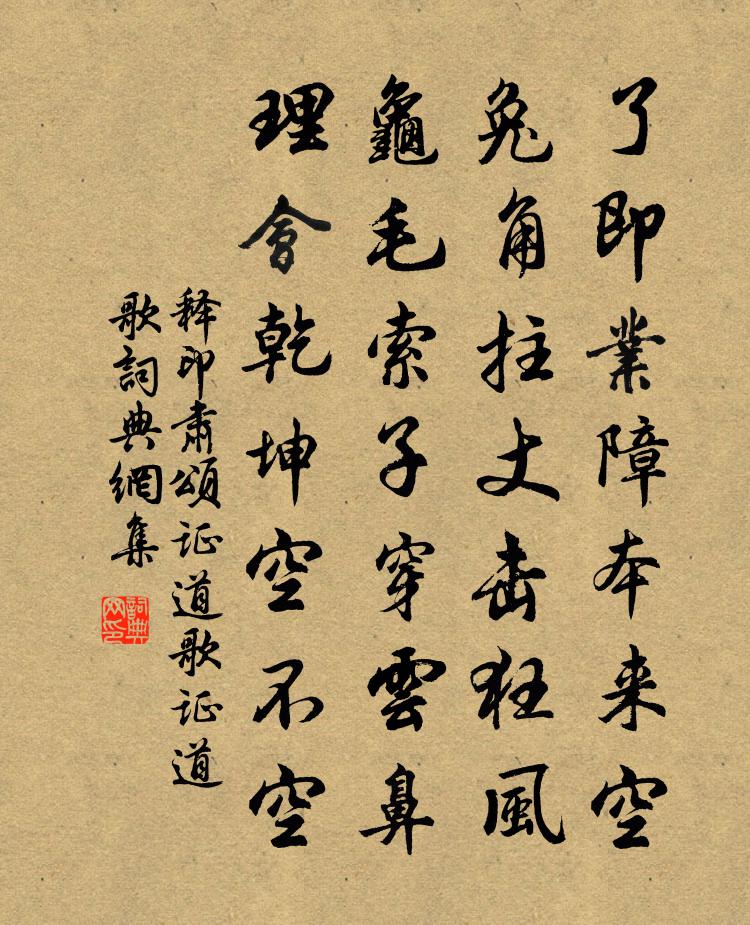 了即業障本来空
兔角拄丈击狂風
龜毛索子穿雲鼻
理會乾坤空不空
释印肃頌证道歌证道
歌詞典網集
詞典网印